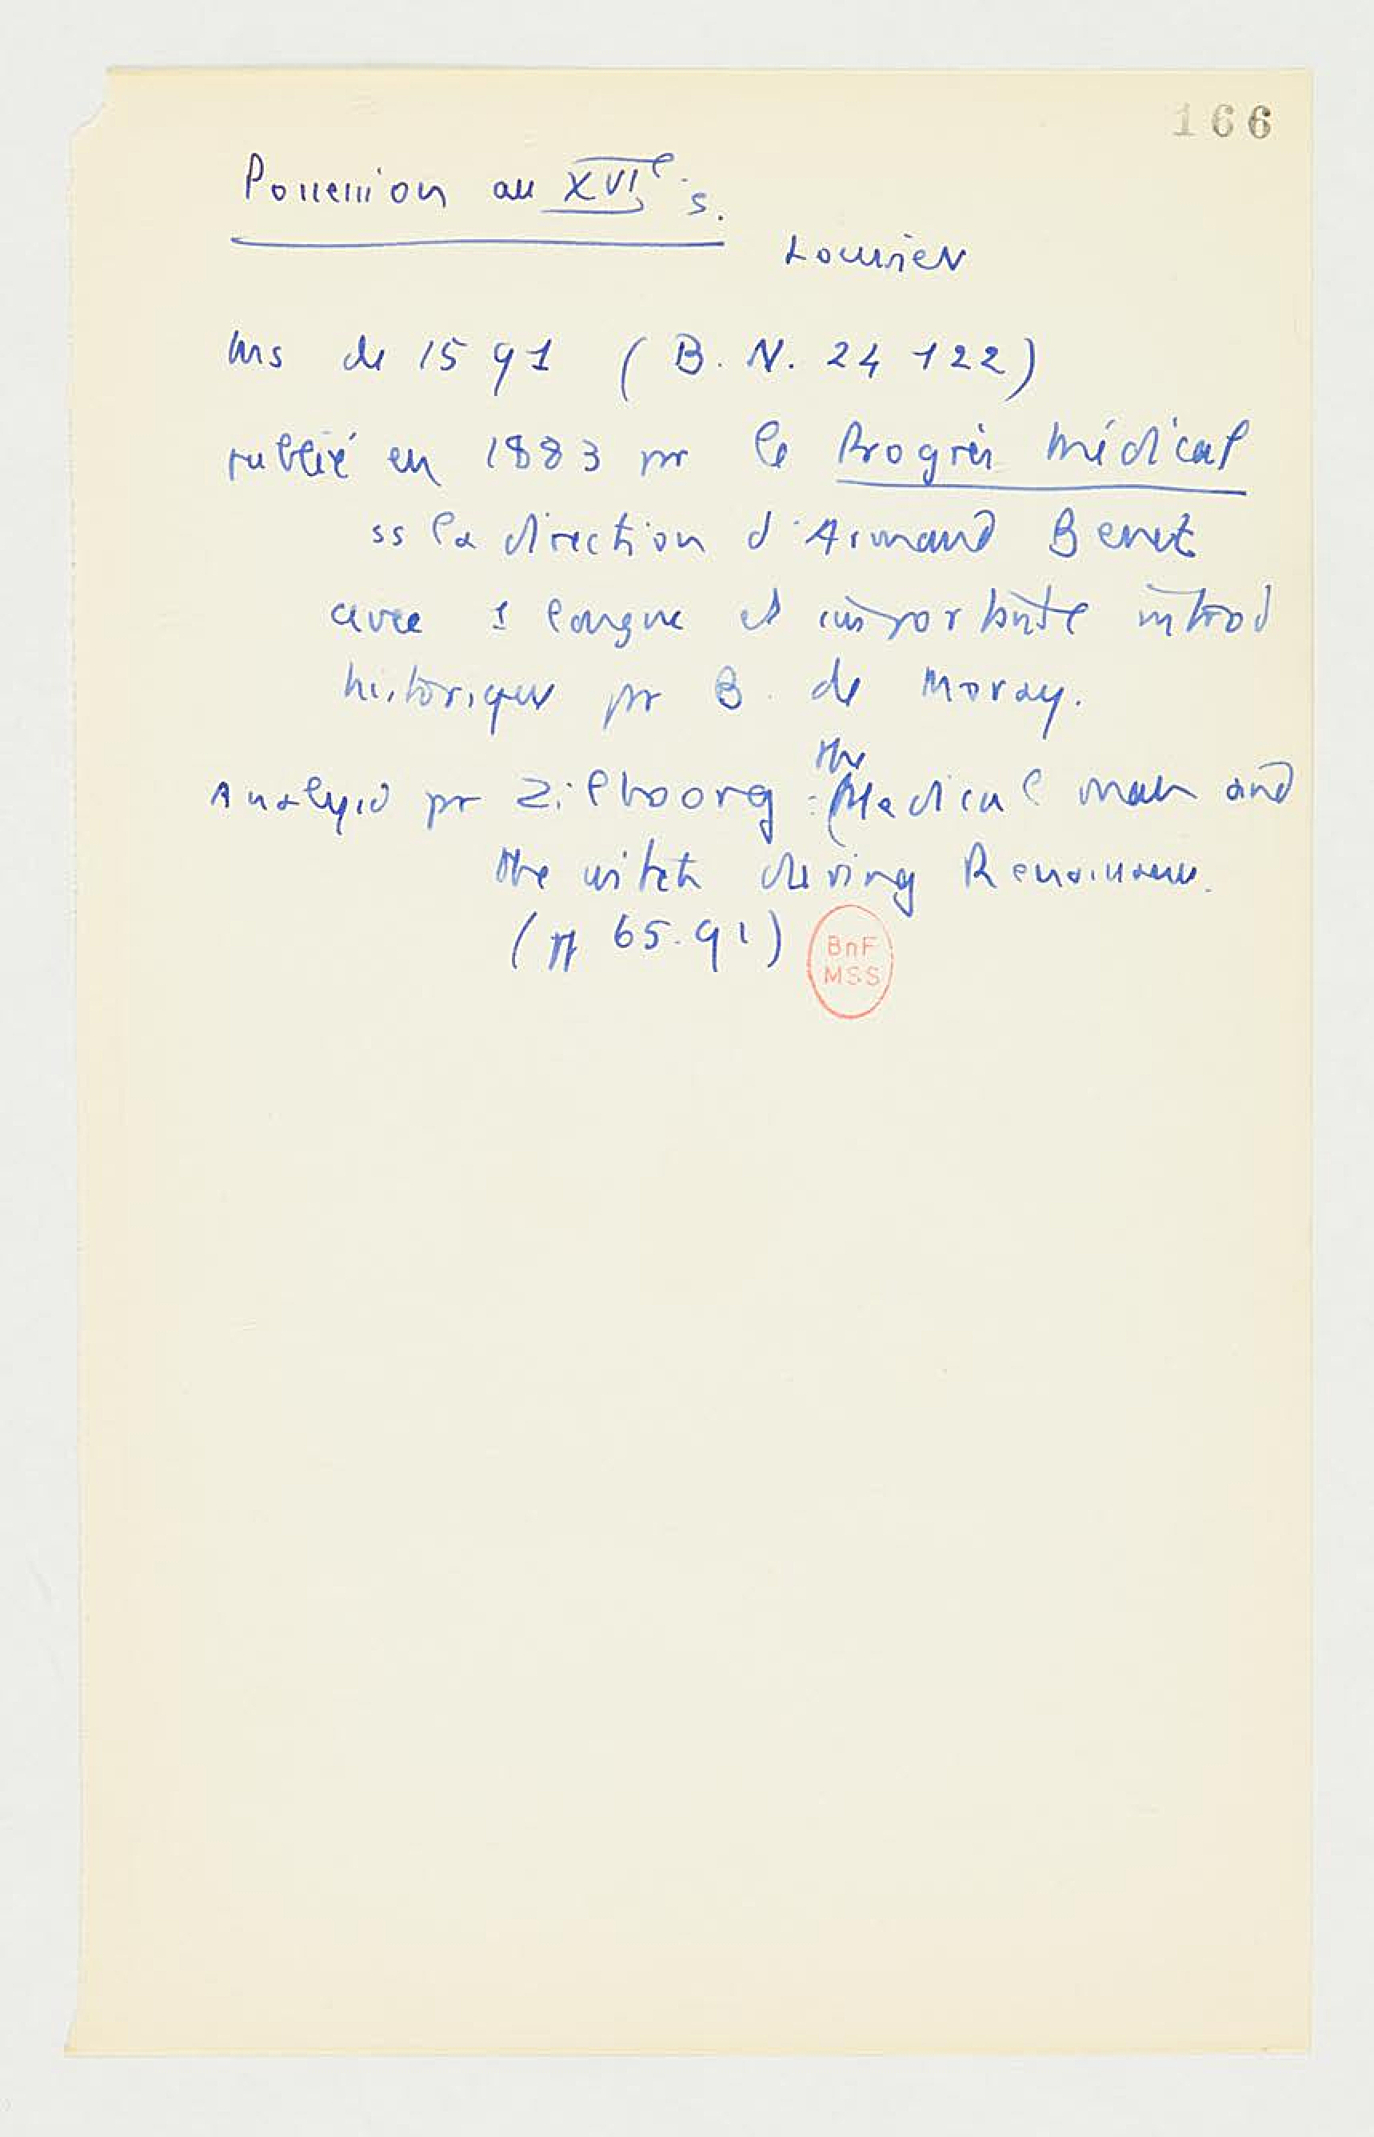 166
Possession au XVIe s.
Louviers
Ms de 1591 (B.N. 24 122)
publié en 1883 pr le Progrès Médical
ss la direction d'Armand Benet
avec 1 longue et importante introd
historique pr B. de Moray.
Analysé pr Zilboorg : the Medical man and
the witch during Renaissance.
(pp 65.91)
BnF
MSS